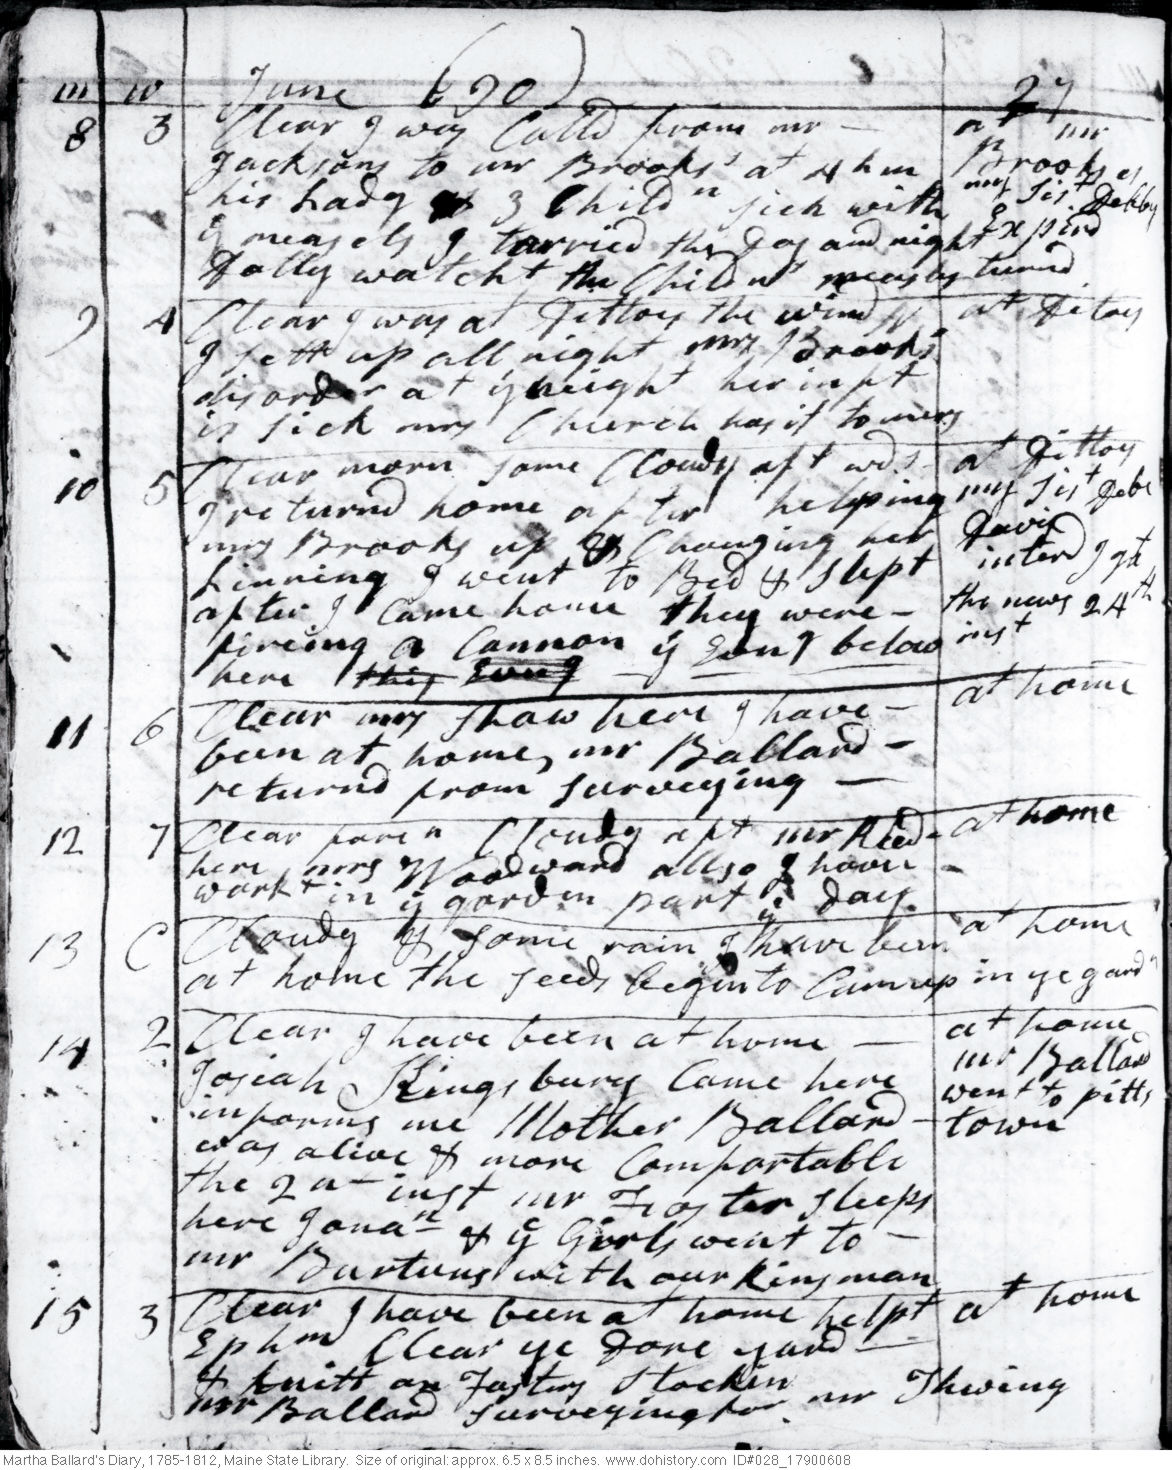 m w June (90) 27
8 3 Clear I was Calld from mr - at mr
Jacksons to mr Brooks' at 4 h m Brooks es
his Lady & 3 Childn sick with my sist Debby
ye measels I tarried the day and night Expird
Dolly watcht the Childn measles turnd
9 4 Clear I was at Dittoes the wind at Ditoes
I sett up all night mrs Brooks
disorder at ye height her inft
is sick mrs Church has it to
10 5 Clear morn some Cloudy aft wds at Dittoes
I returnd home after helping my Sist Debe
mrs Brooks up & Changing her Davis
Linning I went to Bed & slept interd I got
after I Came home they were - the news 24th
fireing a Cannon ye Evng below inst
here this Evng
11 6 Clear mrs Shaw here I have - at home
been at home, mr Ballard -
returnd from surveying -
12 7 Clear foren Cloudy aft mr Reed - at home
here mrs Woodward allso I have -
workt in ye garden part ye day
13 C Cloudy & some rain I have been at home
at home the seeds begin to Cum up in ye gardn
14 2 Clear I have been at home - at home
Josiah Kingsbury Came here mr Ballard
informs me Mother Ballard - went to pitts
was alive & more Comfortable town
the 2n inst mr Foster sleeps
here Jonan & ye Girls went to -
mr Burtuns with our kinsman
15 3 Clear I have been at home helpt at home
Ephm Clear ye dore yard -
& knitt on Fosters Stockin
mr Ballard surveying for mr Thwing
Martha Ballard's Diary, 1785-1812, Maine State Library. Size of original: approx. 6.5 x 8.5 inches. www.dohistory.com ID#028_17900608